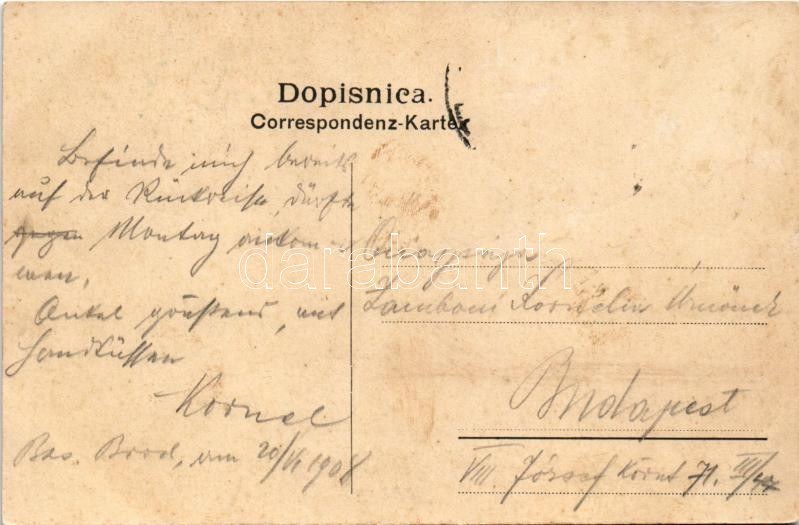 Dopisnica.
Correspondenz-Karte
Befinde mich bereits
auf der Rückreise, dürfte
gegen Montag ankom-
men.
Onkel grüßend, mit
Handküssen
Kornel
Bos. Brod, am 20/VI 1908
Nagysága
Zamboni Kornélia Urnőnek
Budapest
VIII. József Körut 71. III/
darabanth